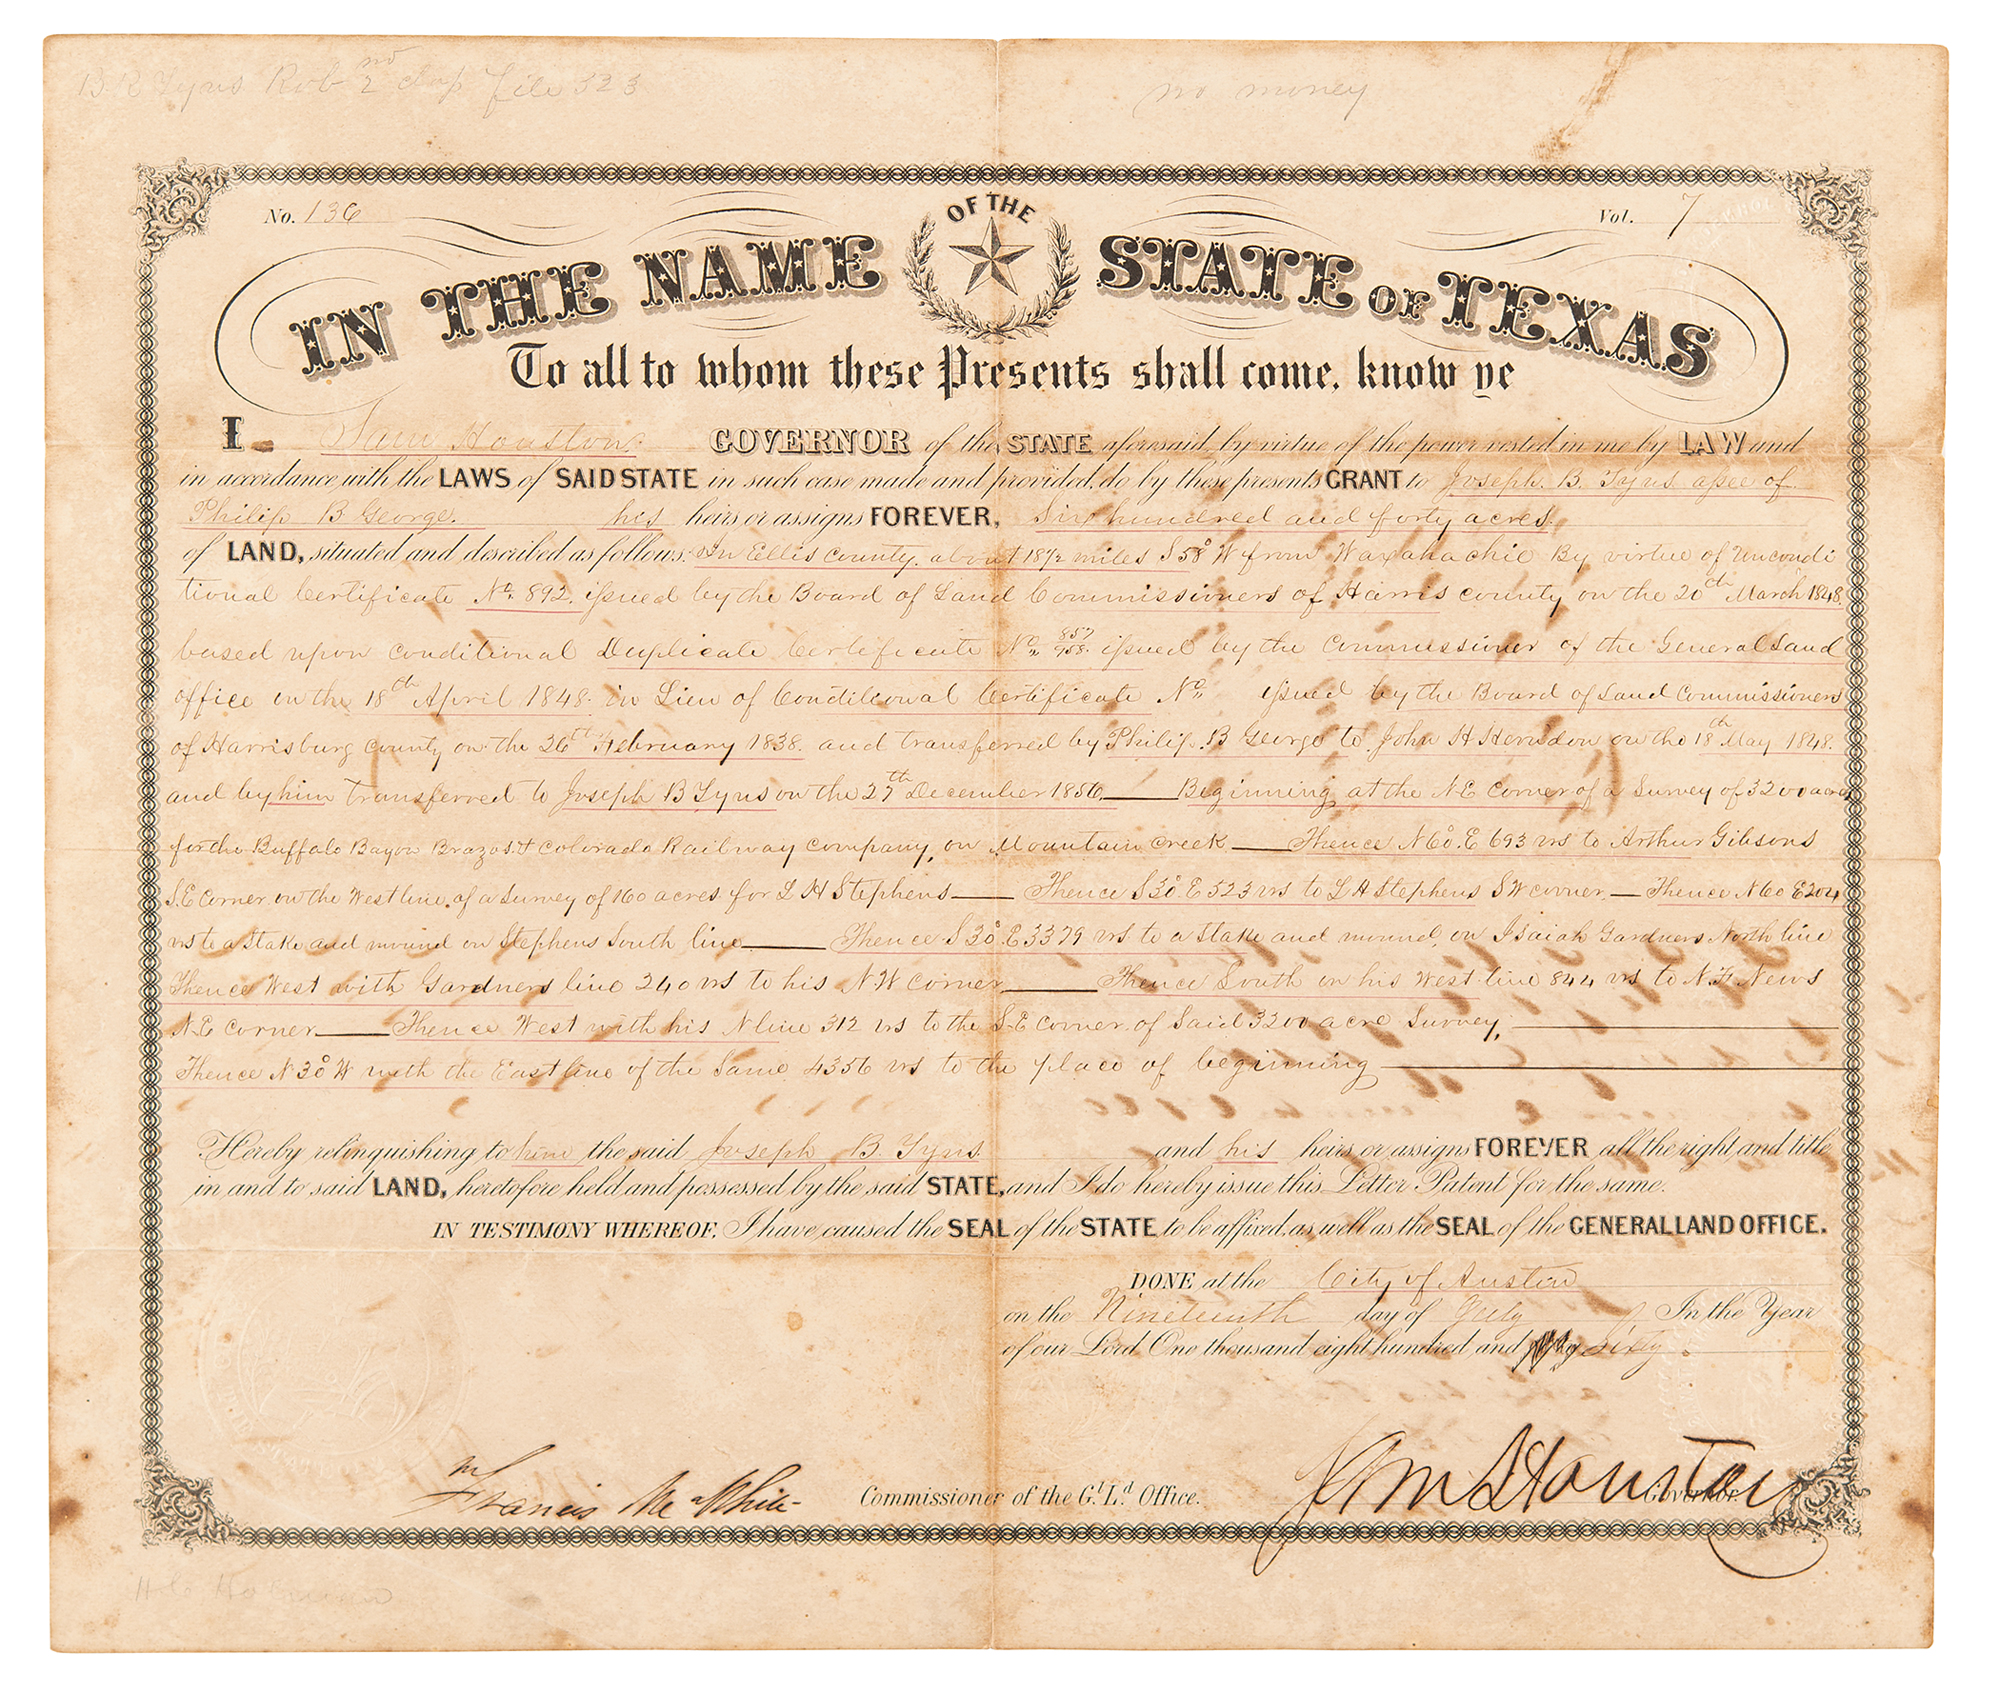 B.R Tyus Rob 2nd class file 323
no money
No. 136
Vol. 7
IN THE NAME OF THE STATE OF TEXAS
To all to whom these Presents shall come, know ye
I Sam Houston GOVERNOR of the STATE aforesaid, by virtue of the power vested in me by LAW and
in accordance with the LAWS of SAID STATE in such case made and provided, do by these presents GRANT to Joseph B. Tyus assee of
Philip B George. his heirs or assigns FOREVER, Six hundred and forty acres
of LAND, situated and described as follows: In Ellis County. about 18 1/2 miles S 58° W from Waxahachie By virtue of Uncondi
tional Certificate No. 892. issued by the Board of Land Commissioners of Harris county on the 20th March 1848.
based upon conditional Duplicate Certificate No. 857/958. issued by the Commissioner of the General Land
office on the 18th April 1848. in Lieu of Conditional Certificate No. issued by the Board of Land Commissioners
of Harrisburg county on the 26th February 1838. and transferred by Philip B George to John H Herndon on the 18th May 1848.
and by him transferred to Joseph B Tyus on the 27th December 1856. Beginning at the N E Corner of a Survey of 3200 acres
for the Buffalo Bayou Brazos & Colorado Railway Company, on Mountain Creek — Thence N 60° E 693 vrs to Arthur Gibsons
S.E Corner on the West line of a Survey of 160 acres for L H Stephens — Thence S 30° E 523 vrs to L H Stephens S W corner — Thence N 60 E 204
vrs to a Stake and mound on Stephens South line — Thence S 30° E 3379 vrs to a Stake and mound, on Isaiah Gardners North line
Thence West with Gardners line 240 vrs to his N W Corner — Thence South on his West line 844 vrs to N. F. News
N-E Corner — Thence West with his N line 312 vrs to the S-E Corner of Said 3200 acre Survey,
Thence N 30° W with the East line of the Same 4356 vrs to the place of beginning
Hereby relinquishing to him the said Joseph B. Tyus. and his heirs or assigns FOREVER all the right and title
in and to said LAND, heretofore held and possessed by the said STATE, and I do hereby issue this Letter Patent for the same.
IN TESTIMONY WHEREOF, I have caused the SEAL of the STATE to be affixed, as well as the SEAL of the GENERAL LAND OFFICE.
DONE at the City of Austin
on the Nineteenth day of July In the Year
of our Lord One thousand eight hundred and sixty.
Francis M White Commissioner of the G.t L.d Office. Sam Houston Governor.